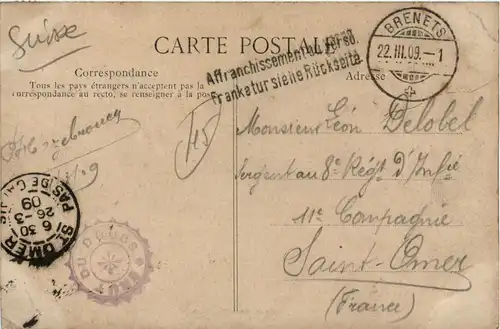 Suisse
CARTE POSTALE
Correspondance
Tous les pays étrangers n'acceptent pas la
correspondance au recto, se renseigner à la pos
Affranchissement au verso.
Frankatur siehe Rückseite.
Adresse
BRENETS
22. III. 09. – 1
Monsieur Léon Delobel
Sergent au 8e Régt d'Infie
11e Compagnie
Saint-Omer
(France)
Hazebrouck
ST OMER
6 30
26 - 3
09
PAS DE CALAIS
SAUT DU DOUBS